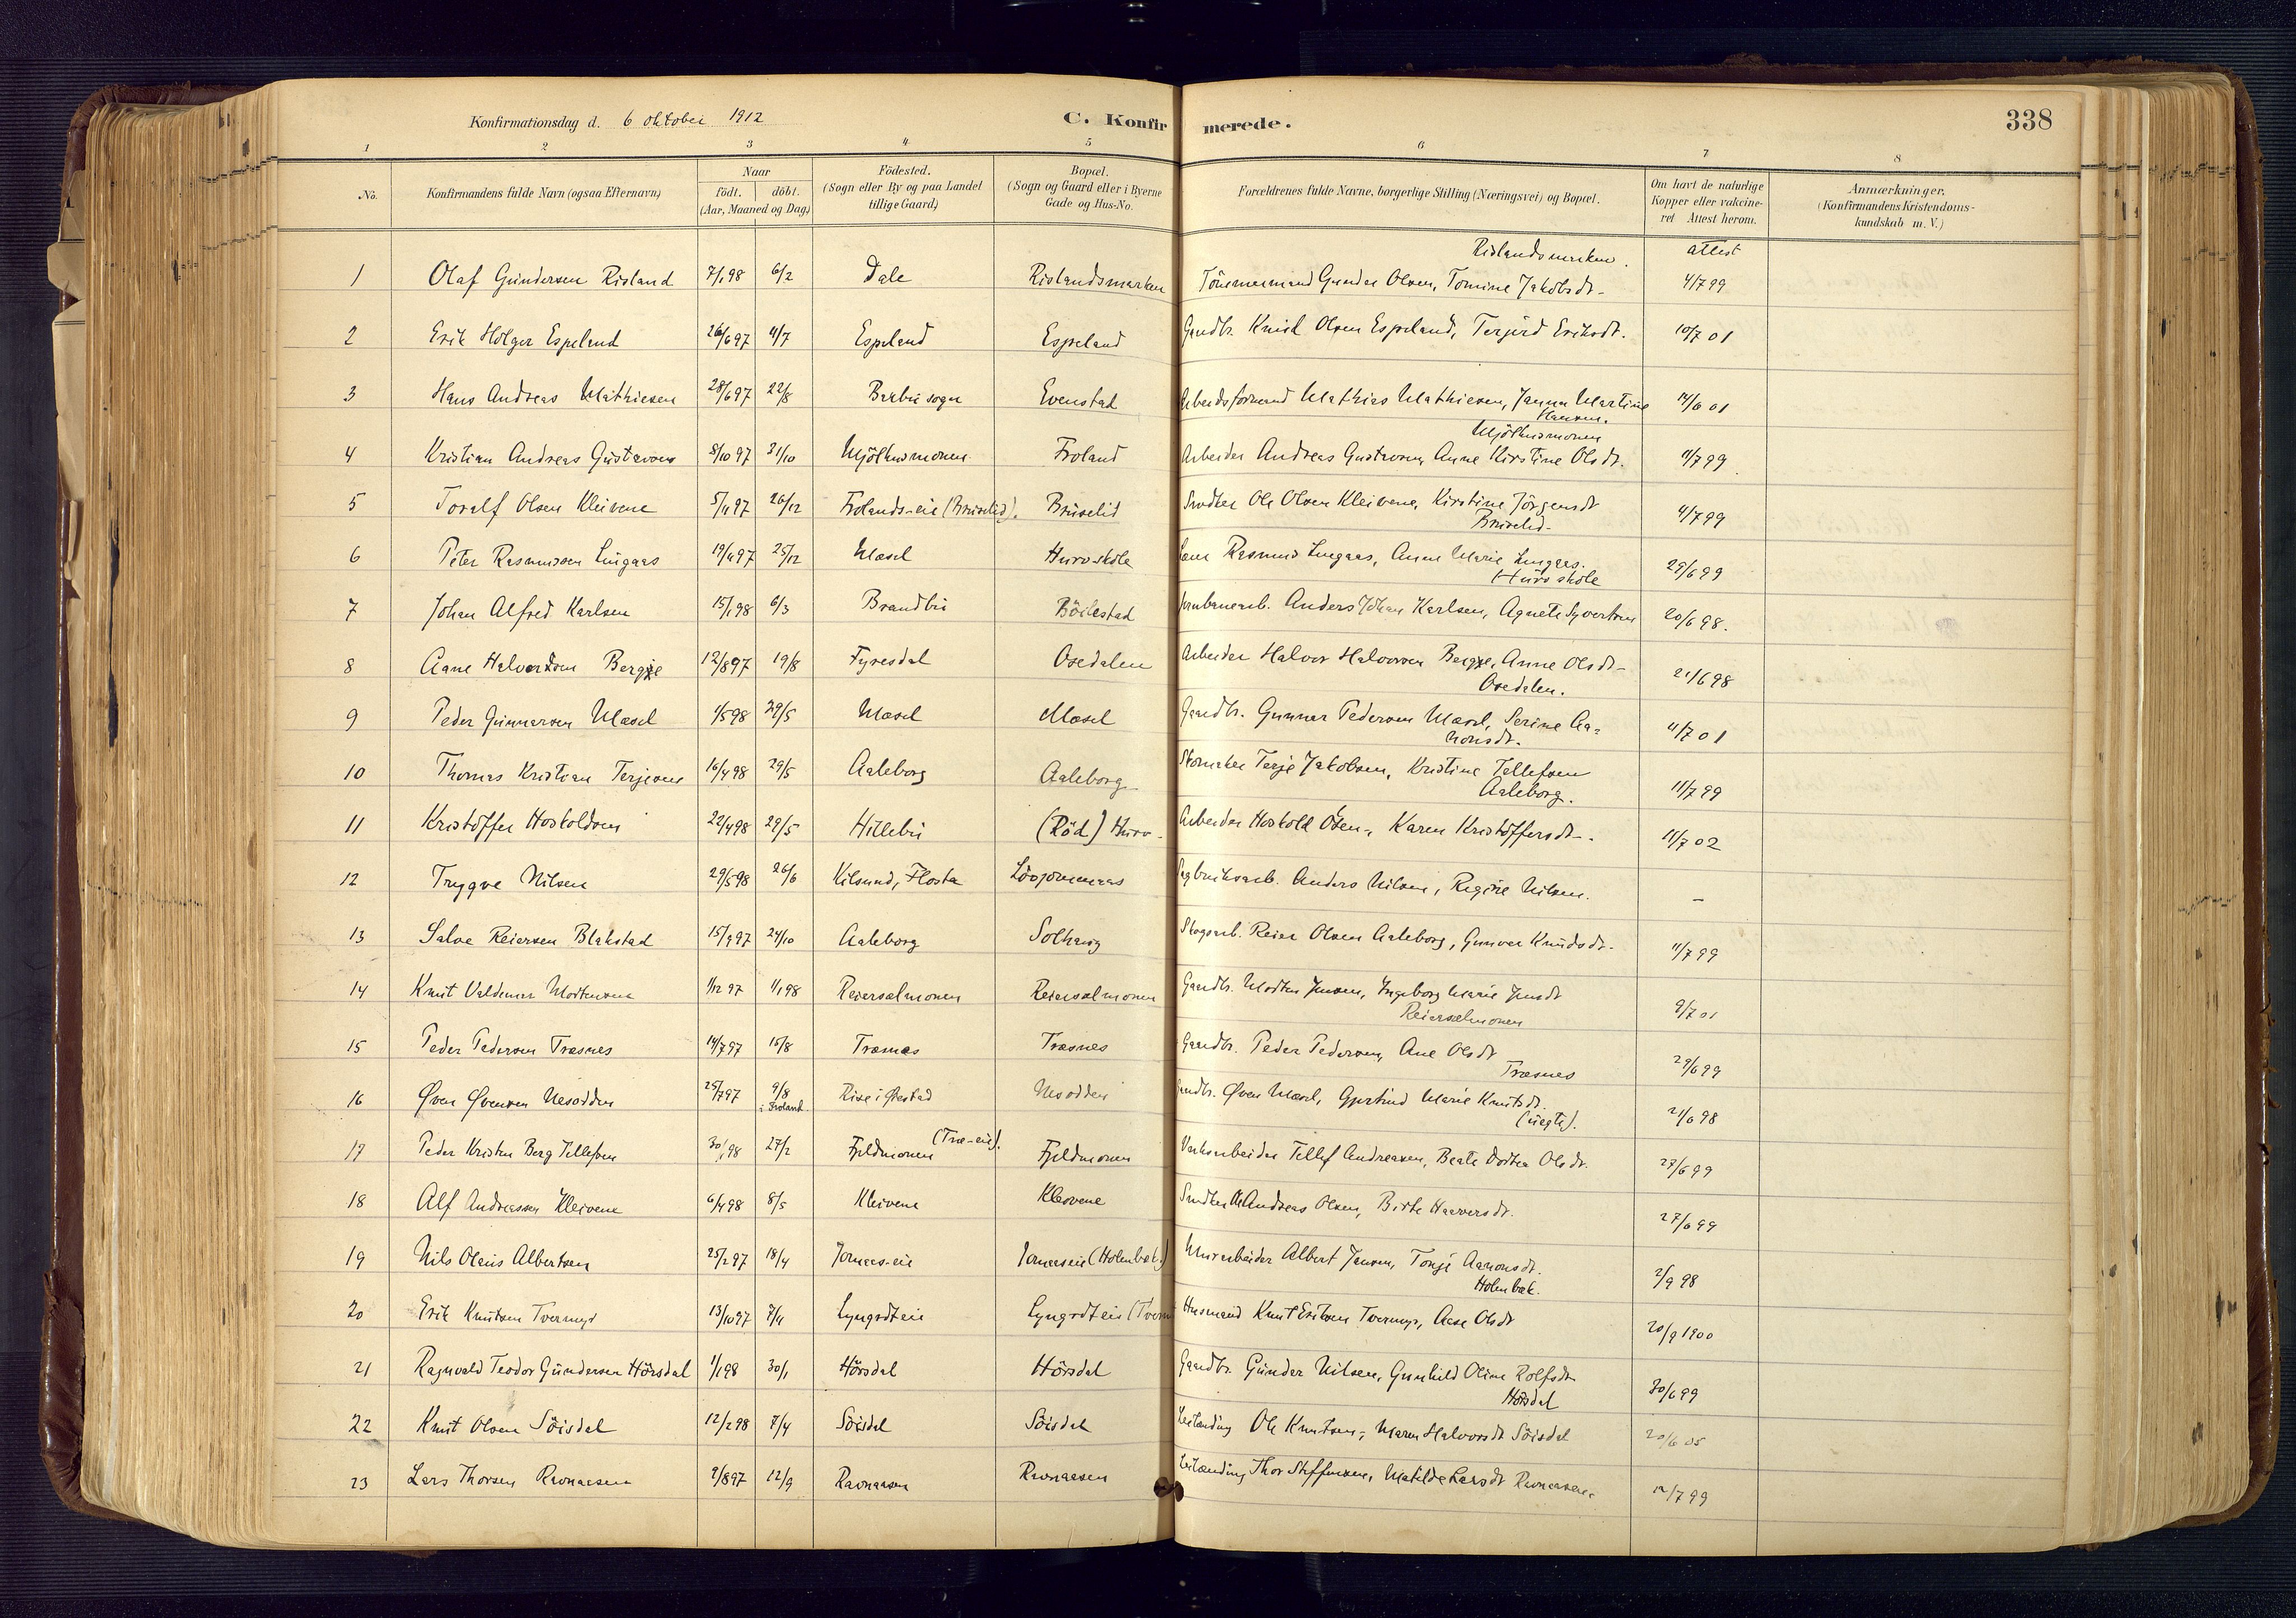 Konfirmationsdag d. 6 oktober 1912 C. Konfirmerede. 338
1 2 3 4 5 6 7 8
No. Konfirmandens fulde Navn (ogsaa Efternavn) Naar födt. döbt. (Aar, Maaned og Dag) Födested. (Sogn eller By og paa Landet tillige Gaard) Bopæl. (Sogn og Gaard eller i Byerne Gade og Hus-No. Forældrenes fulde Navne, borgerlige Stilling (Næringsvei) og Bopæl. Om havt de naturlige Kopper eller vakcineret Attest herom. Anmærkninger. (Konfirmandens Kristendomskundskab m. V.)
Rislandsmarken. attest
1 Olaf Gundersen Risland 7/1 98 6/2 Dale Rislandsmarken Tömmermand Gunder Olsen, Tomine Jakobsdt- 4/7 99
2 Erik Holger Espeland 26/6 97 4/7 Espeland Espeland Gaardbr. Knud Olsen Espeland, Terjerd Eriksdt. 10/7 01
3 Hans Andreas Mathiesen 28/6 97 22/8 Barbu sogn Evenstad Arbeidsformand Mathias Mathiesen, Janna Martine 14/6 01
Hansen.
Mjölhusmonen
4 Kristian Andreas Gustavsen 8/10 97 31/10 Mjölhusmonen Froland Arbeider Andreas Gustavsen, Anne Kirstine Olsdt. 11/7 99
5 Toralf Olsen Kleivene 5/11 97 26/12 Frolands-eie (Bruselid). Bruselid Snedker Ole Olsen Kleivene, Kirstine Jörgensdt 4/7 99
Bruselid-
6 Peter Rasmussen Lingaas 19/11 97 25/12 Mæsel Hurv-skole Lærer Rasmus Lingaas, Anne Marie Lingaas. 29/6 99
Hurv skole
7 Johan Alfred Karlsen 15/1 98 6/3 Brandbu Böilestad Jernbanearb. Anders Johan Karlsen, Agnete Syvertsen 20/6 98.
8 Aane Halvorsen Bergje 12/8 97 19/8 Fyresdal Osedalen Arbeider Halvor Halvorsen Bergje, Anne Olsdt- 21/6 98
Osedalen.
9 Peder Gunnarsen Mæsel 1/5 98 29/5 Mæsel Mæsel Gaardbr. Gunnar Pedersen Mæsel, Serine Aa= 11/7 01
nonsdt.
10 Thomas Kristian Terjesen 16/4 98 29/5 Aaleborg Aaleborg Skomaker Terje Jakobsen, Kristine Tellefsen 11/7 99
Aaleborg.
11 Kristoffer Hoskoldsen 22/4 98 29/5 Hillebu (Röd) Hurv- Arbeider Hoskold Osen, Karen Kristoffersdt-. 11/7 02
12 Trygve Nilsen 29/5 98 26/6 Kilsund, Flosta Lövjomaas Sagbruksarb. Anders Nilsen, Regine Nilsen. -
13 Salve Reiersen Blakstad 15/9 97 24/10 Aaleborg Solhaug Skogsarb. Reier Olsen Aaleborg, Gunvor Knudsdt- 11/7 99
14 Knut Valdemar Mortensen 1/12 97 1/1 98 Reierselmonen Reierselmonen Gaardbr. Morten Jensen, Ingeborg Marie Jensdt 9/7 01
Reierselmonen
15 Peder Pedersen Træsnes 14/7 97 15/8 Træsnes Træsnes Gaardbr. Peder Pedersen, Ane Olsdt 29/6 99
Træsnes
16 Øven Øvensen Nesodden 25/7 97 9/8 i Froland. Rise i Øiestad Nesodden Gaardbr. Øven Mæsel, Gjertrud Marie Knutsdt. 21/6 98
(uegte).
17 Peder Kristen Berg Tellefsen 30/1 98 27/2 Fjeldmonen (Træ-eie). Fjeldmonen Verksarbeider Tellef Andreasen, Beate Dortea Olsdt. 27/6 99
18 Alf Andreassen Kleivene 6/4 98 8/5 Kleivene Kleivene Snedker Ole Andreas Olsen, Birte Haaversdt. 27/6 99
19 Nils Olaus Albertsen 25/2 97 18/4 Jomaas-eie Jomaaseie (Holmbæk) Murarbeider Albert Jensen, Tonje Aanonsdt. 2/9 98
Holmbæk.
20 Erik Knutsen Tvermyr 13/10 97 7/11 Lyngrdt eie Lyngrdt eie (Tverm Husmand Knut Eriksen Tvermyr, Aase Olsdt 20/9 1900
21 Ragnvald Teodor Gundersen Hörsdal 1/1 98 30/1 Hörsdal Hörsdal Gaardbr. Gunder Nilsen, Gunhild Oline Rolfsdt 30/6 99
Hörsdal
22 Knut Olsen Söisdal 12/2 98 7/4 Söisdal Söisdal Leilending Ole Knutsen, Maren Halvorsdt Söisdal 20/6 05
23 Lars Thorsen Ravnaasen 2/8 97 12/9 Ravnaasen Ravnaasen Leilending Thor Steffensen, Matilde Larsdt Ravnaasen. 12/7 99